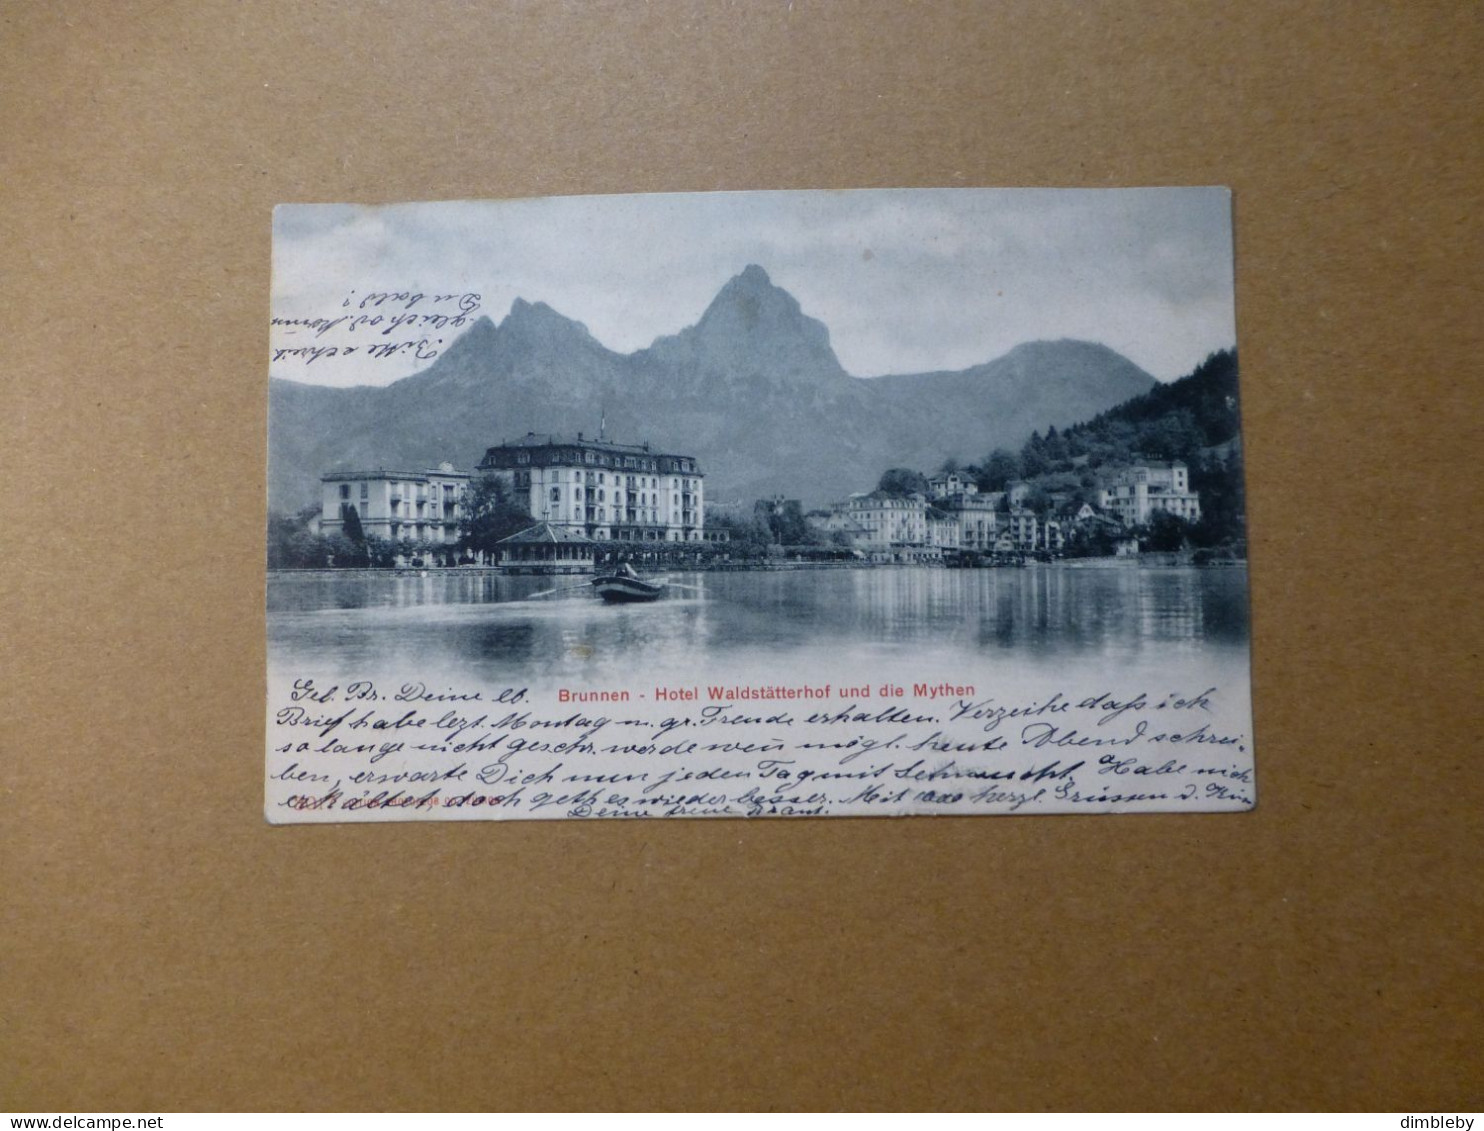 Bitte schreib
gleich od. komm
Du bald?
Brunnen - Hotel Waldstätterhof und die Mythen
Gel. Br. Deine lb.
Brief habe lezt. Montag m. gr. Freude erhalten. Verzeihe daß ich
so lange nicht geschr. werde wen̄ mögl. heute Abend schrei-
ben, erwarte Dich nun jeden Tag mit Sehnsucht. Habe mich
erkältet, doch geht es wieder besser. Mit 1000 herzl. Grüssen u. Küs
Deine treue Braut.
www.delcampe.net
dimbleby